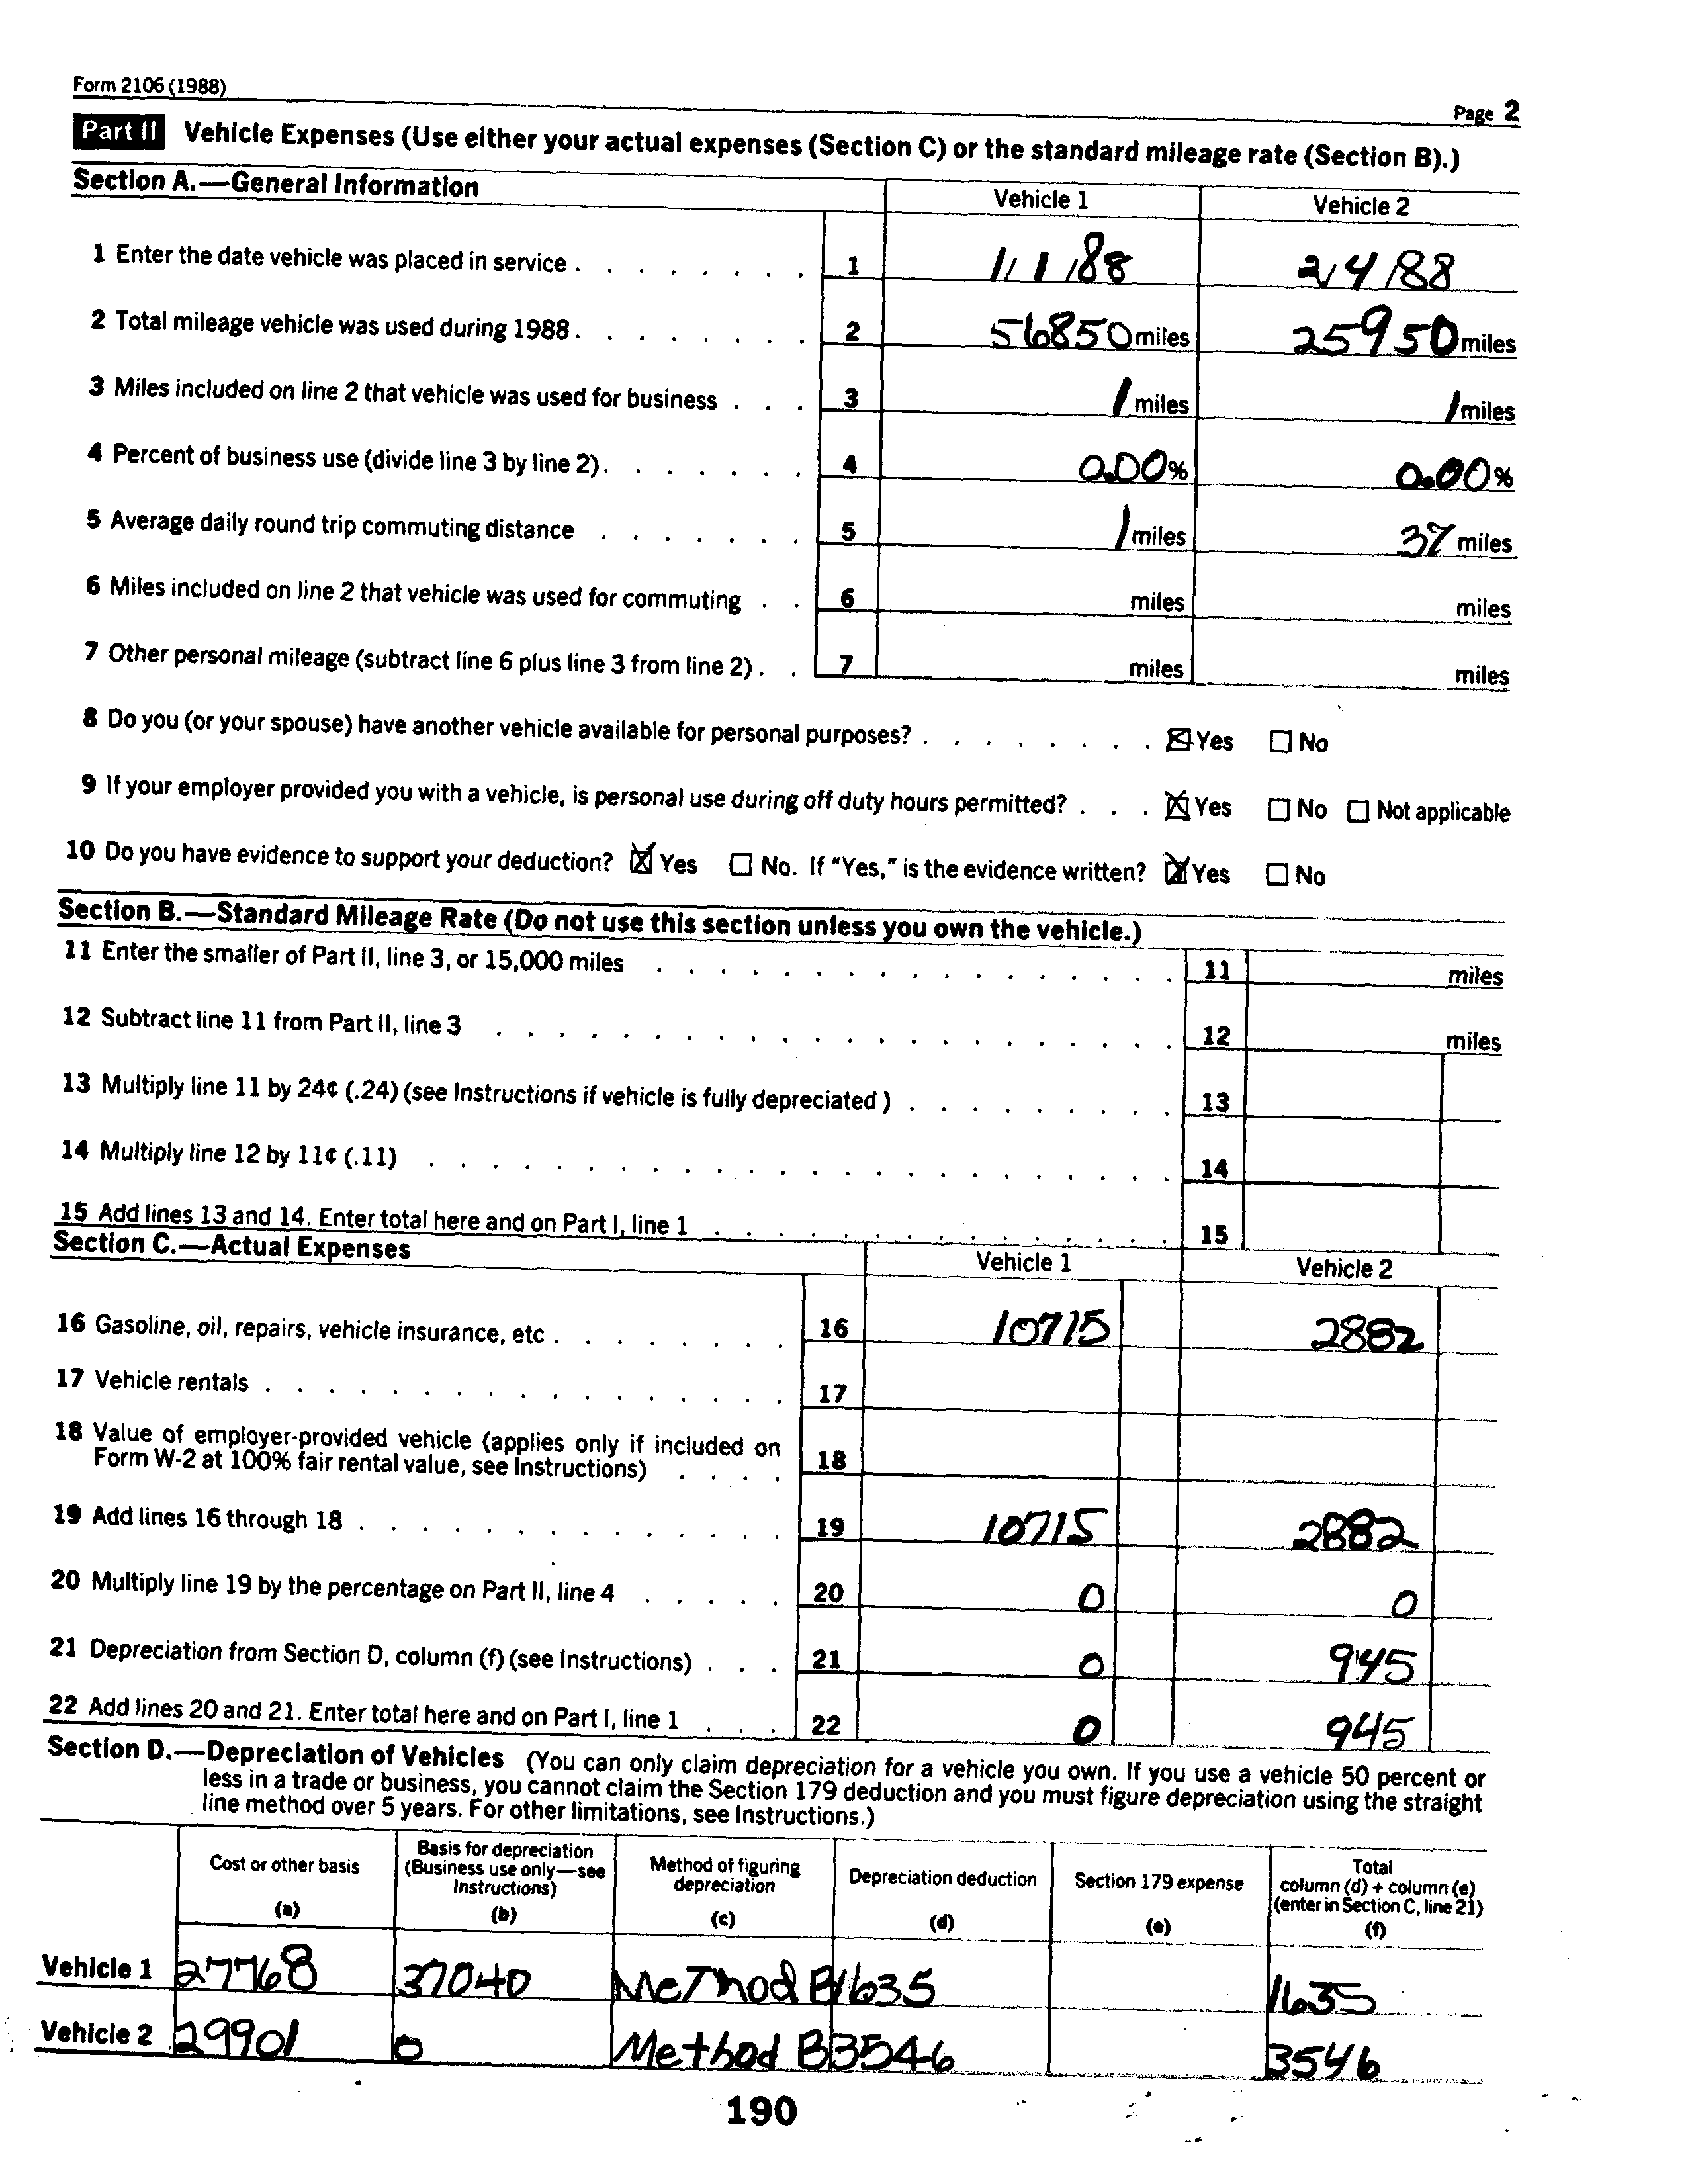 Form 2106 (1988)
Page 2
Part II Vehicle Expenses (Use either your actual expenses (Section C) or the standard mileage rate (Section B).)
Section A.—General Information
Vehicle 1 Vehicle 2
1 Enter the date vehicle was placed in service . . . . . . . . 1 1/1/88 2/4/88
2 Total mileage vehicle was used during 1988 . . . . . . . . 2 56850 miles 25950 miles
3 Miles included on line 2 that vehicle was used for business . . . 3 1 miles 1 miles
4 Percent of business use (divide line 3 by line 2) . . . . . . . 4 0.00% 0.00%
5 Average daily round trip commuting distance . . . . . . . 5 1 miles 37 miles
6 Miles included on line 2 that vehicle was used for commuting . . 6 miles miles
7 Other personal mileage (subtract line 6 plus line 3 from line 2) . . 7 miles miles
8 Do you (or your spouse) have another vehicle available for personal purposes? . . . . . . . . ☒ Yes ☐ No
9 If your employer provided you with a vehicle, is personal use during off duty hours permitted? . . . ☒ Yes ☐ No ☐ Not applicable
10 Do you have evidence to support your deduction? ☒ Yes ☐ No. If “Yes,” is the evidence written? ☒ Yes ☐ No
Section B.—Standard Mileage Rate (Do not use this section unless you own the vehicle.)
11 Enter the smaller of Part II, line 3, or 15,000 miles . . . . . . . . . . . . . . . . . 11 miles
12 Subtract line 11 from Part II, line 3 . . . . . . . . . . . . . . . . . . . . . . 12 miles
13 Multiply line 11 by 24¢ (.24) (see Instructions if vehicle is fully depreciated ) . . . . . . . . . 13
14 Multiply line 12 by 11¢ (.11) . . . . . . . . . . . . . . . . . . . . . . . . 14
15 Add lines 13 and 14. Enter total here and on Part I, line 1 . . . . . . . . . . . . . . . 15
Section C.—Actual Expenses
Vehicle 1 Vehicle 2
16 Gasoline, oil, repairs, vehicle insurance, etc . . . . . . . . 16 10715 2882
17 Vehicle rentals . . . . . . . . . . . . . . . . . 17
18 Value of employer-provided vehicle (applies only if included on
Form W-2 at 100% fair rental value, see Instructions) . . . . 18
19 Add lines 16 through 18 . . . . . . . . . . . . . . 19 10715 2882
20 Multiply line 19 by the percentage on Part II, line 4 . . . . . 20 0 0
21 Depreciation from Section D, column (f) (see Instructions) . . . 21 0 945
22 Add lines 20 and 21. Enter total here and on Part I, line 1 . . . 22 0 945
Section D.—Depreciation of Vehicles (You can only claim depreciation for a vehicle you own. If you use a vehicle 50 percent or
less in a trade or business, you cannot claim the Section 179 deduction and you must figure depreciation using the straight
line method over 5 years. For other limitations, see Instructions.)
Cost or other basis
(a)
Basis for depreciation
(Business use only—see
Instructions)
(b)
Method of figuring
depreciation
(c)
Depreciation deduction
(d)
Section 179 expense
(e)
Total
column (d) + column (e)
(enter in Section C, line 21)
(f)
Vehicle 1 27768 37040 Method B 1635 1635
Vehicle 2 29901 0 Method B 3546 3546
190